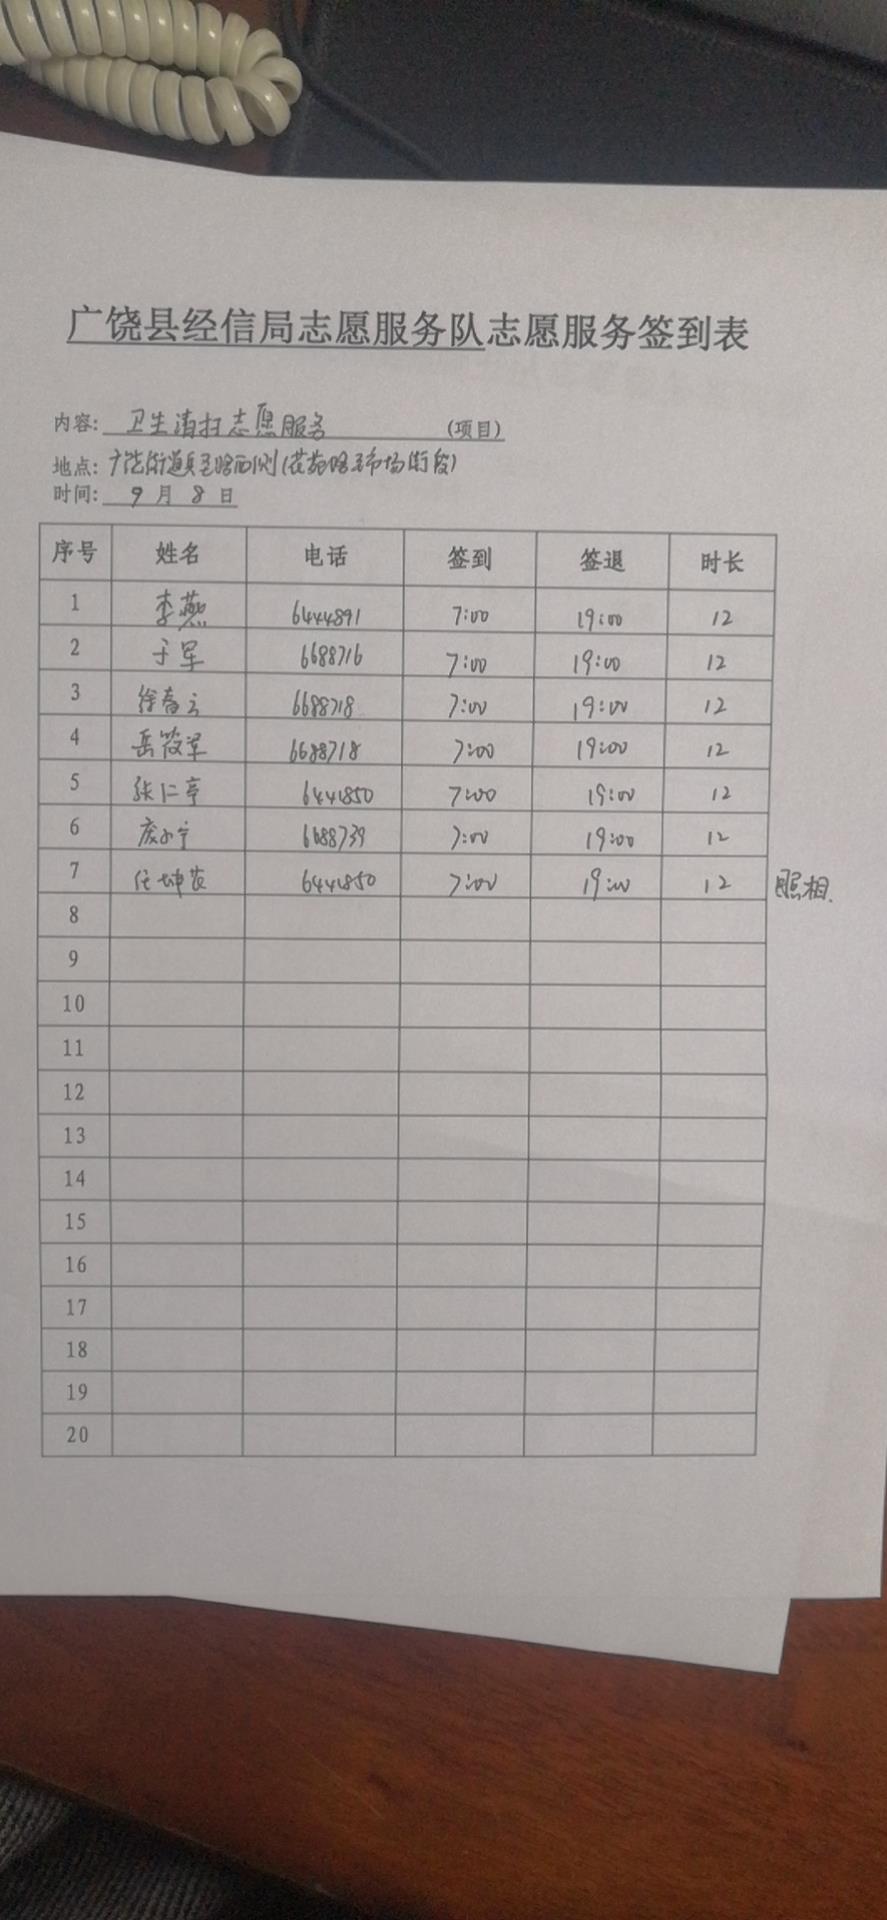 广饶县经信局志愿服务队志愿服务签到表
内容: 卫生清扫志愿服务 (项目)
地点: 广饶街道兵圣路西侧(花苑路至市场街段)
时间: 9月8日
序号 姓名 电话 签到 签退 时长
1 李燕 6444891 7:00 19:00 12
2 于军 6688716 7:00 19:00 12
3 徐春云 6688718 7:00 19:00 12
4 岳筱军 6688718 7:00 19:00 12
5 张仁亭 6441850 7:00 19:00 12
6 小宁 6688739 7:00 19:00 12
7 任坤 6441850 7:00 19:00 12 照相.
8
9
10
11
12
13
14
15
16
17
18
19
20